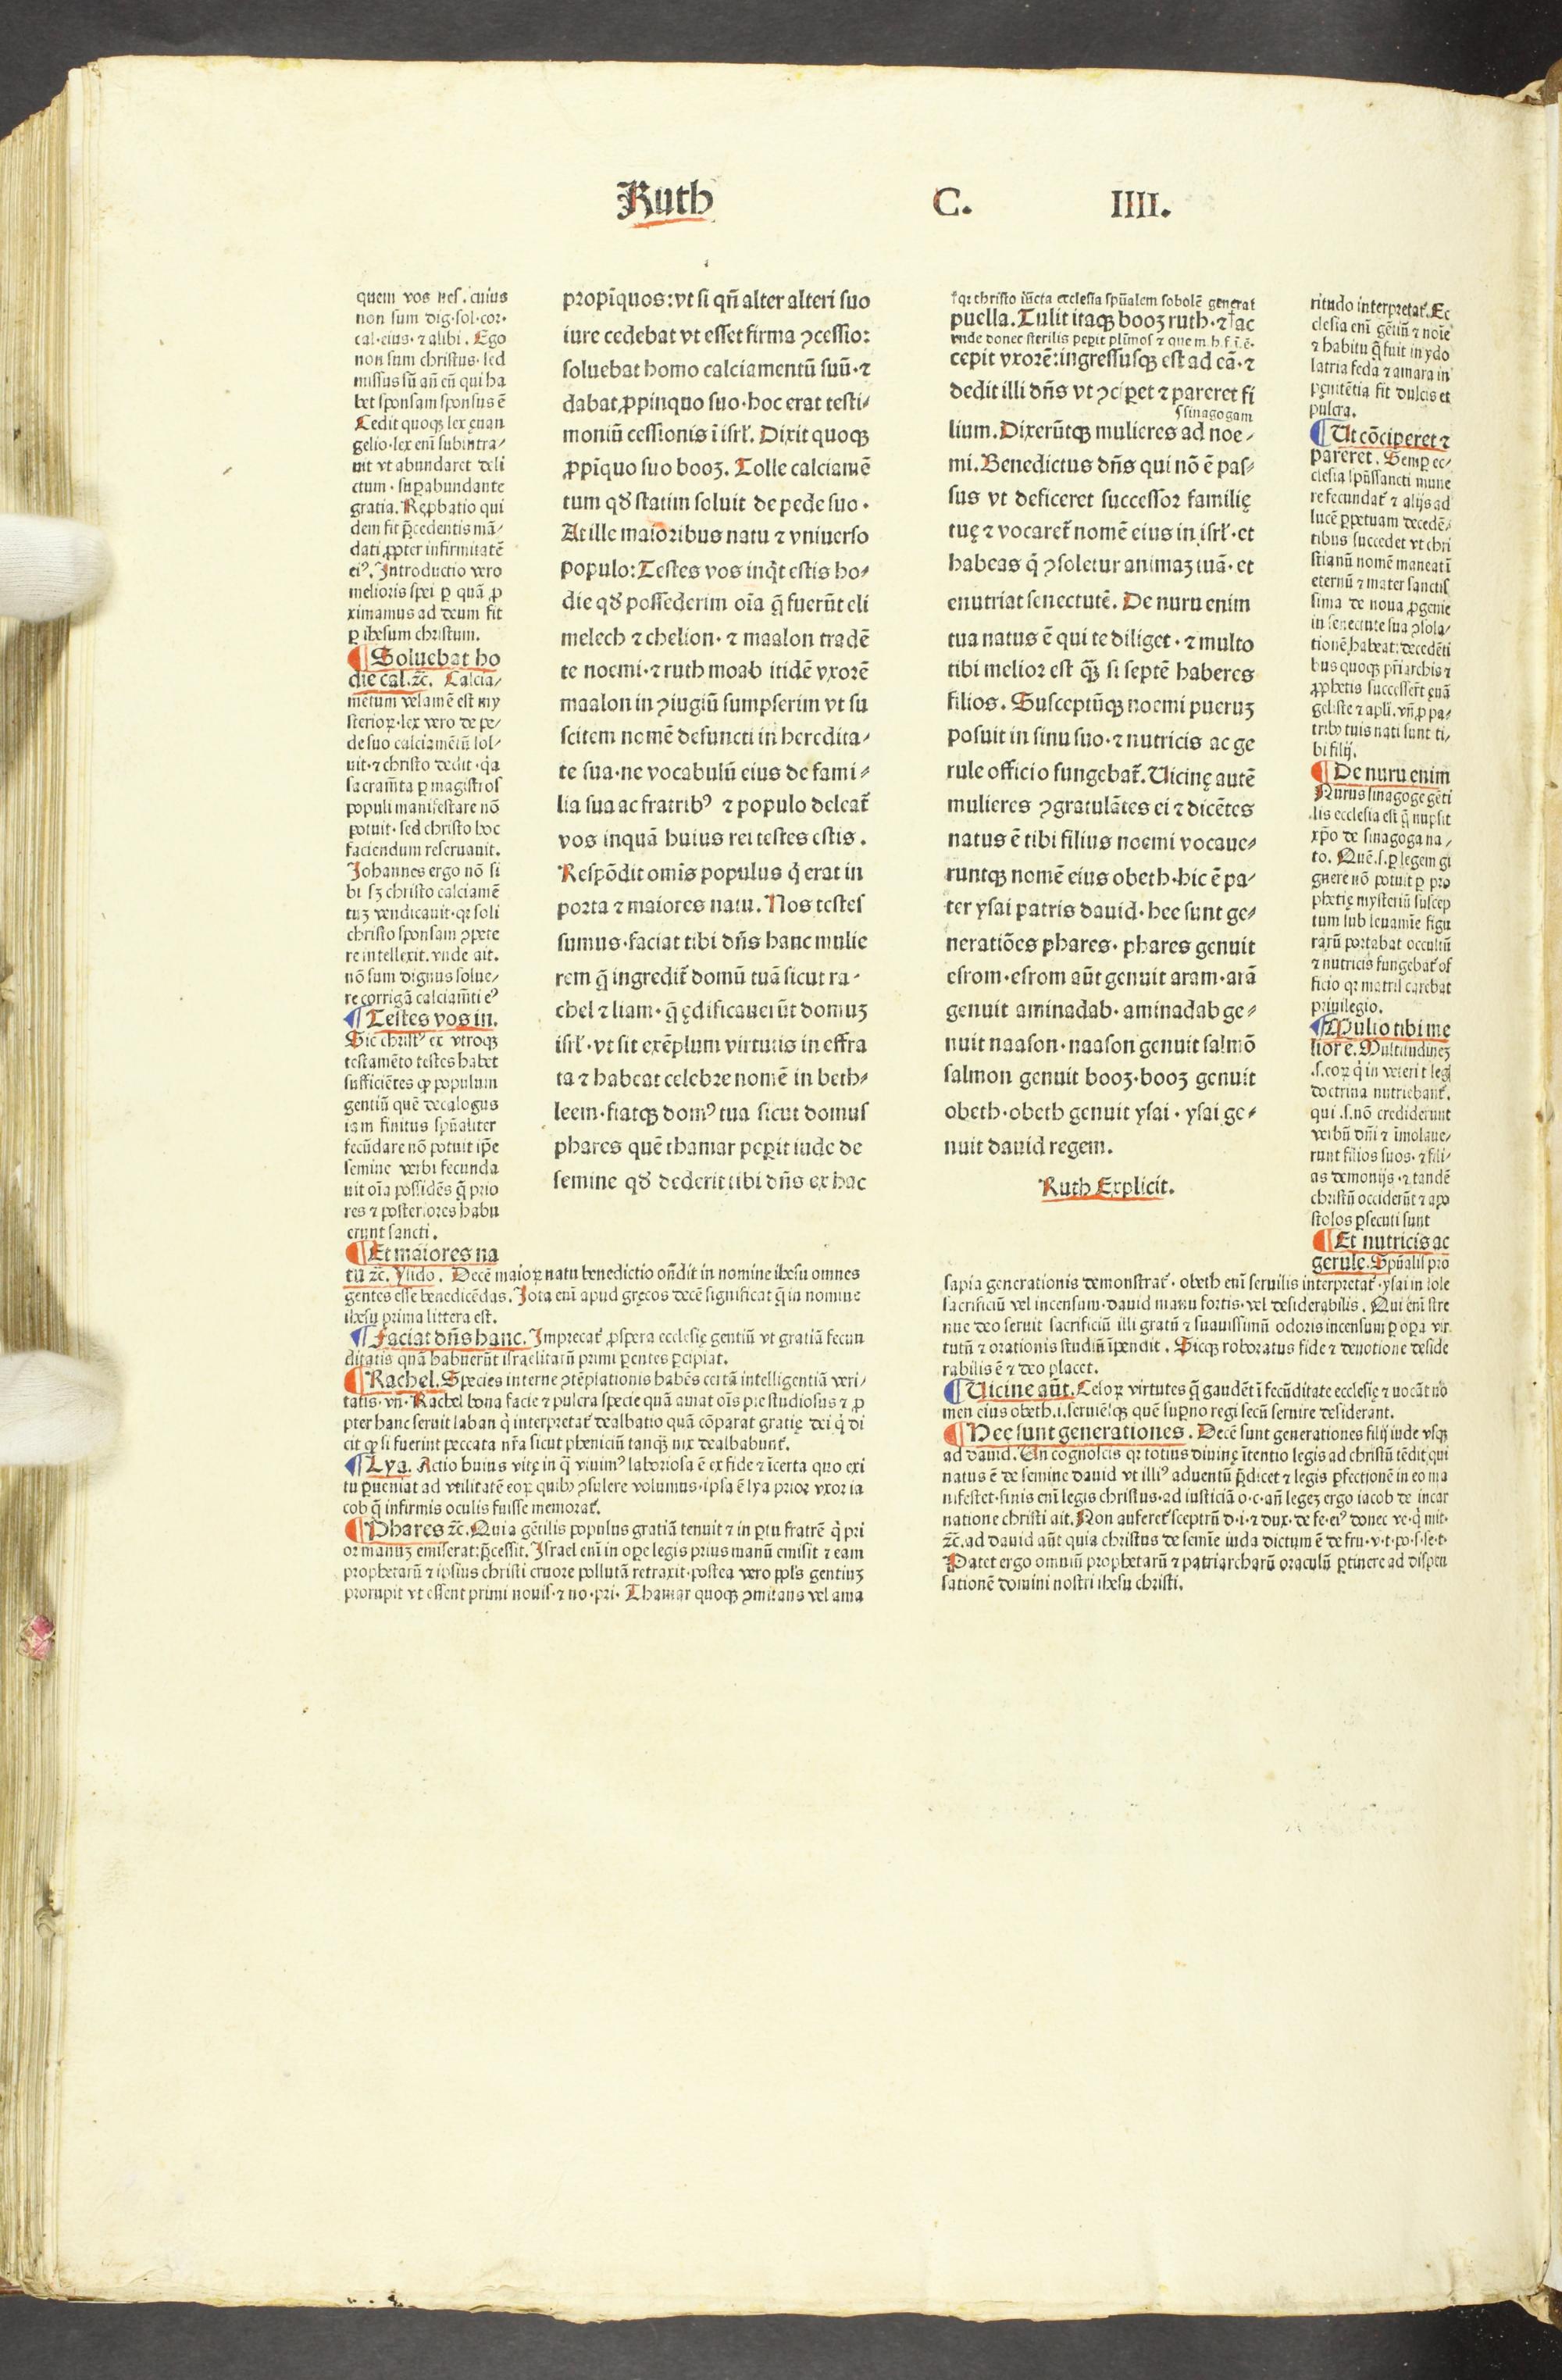 Ruth C. IIII.
quem vos nes. cuius
non sum dig·sol·cor·
cal·eius·⁊ alibi. Ego
non sum christus·sed
missus sū añ eū qui ha
bet sponsam sponsus ē
Cedit quoqꝫ lex ęuan
gelio·lex enī subintra/
uit vt abundaret deli
ctum·suꝑabundante
gratia. Reꝓbatio qui
dem fit p̄cedentis mā/
dati ꝓpter infirmitatē
eiꝰ. Introductio vero
melioris spei ꝑ quā ꝓ
ximamus ad deum fit
ꝑ ihesum christum.
¶ Soluebat ho
die cal.⁊c̄. Calcia/
mētum velamē est my
sterioꝝ·lex vero de pe/
de suo calciamētū sol/
uit·⁊ christo dedit·qa
sacram̄ta ꝑ magistros
populi manifestare nō
potuit·sed christo hoc
faciendum reseruauit.
Johannes ergo nō si
bi sꝫ christo calciamē
tuꝫ vendicauit·qꝛ soli
christo sponsam ꝯpete
re intellexit. vnde ait.
nō sum dignus solue/
re corrigā calciam̄ti eꝰ
¶ Testes vos in.
Sic christꝰ ex vtroqꝫ
testamēto testes habet
sufficiētes ꝙ populum
gentiū quē decalogus
iam finitus spūaliter
fecūdare nō potuit ip̄e
semine verbi fecunda
uit oīa possidēs q̄ prio
res ⁊ posteriores habu
erunt sancti.
¶ Et maiores na
tu ⁊c̄. Ysido. Decē maioꝝ natu benedictio on̄dit in nomine ihesu omnes
gentes esse benedicēdas. Jota enī apud gręcos decē significat q̄ in nomine
ihesu prima littera est.
¶ Faciat dn̄s hanc. Imprecat᷑ ꝓspera ecclesię gentiū vt gratiā fecun
ditatis quā habuerūt israelitarū primi ꝑentes ꝑcipiat.
¶ Rachel. Species interne ꝯtēplationis habēs certā intelligentiā veri/
tatis·vn̄·Rachel bona facie ⁊ pulcra specie quā amat oīs pie studiosus ⁊ ꝓ
pter hanc seruit laban q̇ interpretat᷑ dealbatio quā cōparat gratię dei q̇ di
cit ꝙ si fuerint peccata nr̄a sicut pheniciū tanqꝫ nix dealbabunt᷑.
¶ Lya. Actio huius vitę in q̄ viuimꝰ laboriosa ē ex fide ⁊ īcerta quo exi
tu ꝑueniat ad vtilitatē eoꝝ quibꝰ ꝯsulere volumus·ipsa ē lya prior vxor ia
cob q̄ infirmis oculis fuisse memorat᷑.
¶ Phares ⁊c̄. Quia gētilis populus gratiā tenuit ⁊ in ꝑtu fratrē q̇ pri
or manuꝫ emiserat:p̄cessit. Israel enī in oꝑe legis prius manū emisit ⁊ eam
prophetarū ⁊ ipsius christi cruore pollutā retraxit·postea vero ppl̄s gentiuꝫ
prorupit vt essent primi nouis·⁊ no·pri· Thamar quoqꝫ ꝯmutans vel ama
propīquos:vt si qn̄ alter alteri suo
iure cedebat vt esset firma ꝯcessio:
soluebat homo calciamentū suū·⁊
dabat ꝓpinquo suo·hoc erat testi/
moniū cessionis ī isrl᷑. Dixit quoqꝫ
ꝓpīquo suo booꝫ. Tolle calciamē
tum qd̕ statim soluit de pede suo.
At ille maioribus natu ⁊ vniuerso
populo:Testes vos inq̇t estis ho/
die qd̕ possederim oīa q̄ fuerūt eli
melech ⁊ chelion·⁊ maalon tradē
te noemi·⁊ ruth moab itidē vxorē
maalon in ꝯiugiū sumpserim vt su
scitem nomē defuncti in heredita/
te sua·ne vocabulū eius de fami/
lia sua ac fratribꝰ ⁊ populo deleat᷑
vos inquā huius rei testes estis.
Respōdit omīs populus q̇ erat in
porta ⁊ maiores natu. Nos testes
sumus·faciat tibi dn̄s hanc mulie
rem q̄ ingredit᷑ domū tuā sicut ra/
chel ⁊ liam·q̄ ędificauerūt domuꝫ
isrl᷑·vt sit exēplum virtutis in effra
ta ⁊ habeat celebre nomē in beth/
leem·fiatqꝫ domꝰ tua sicut domus
phares quē thamar peꝑit iude de
semine qd̕ dederit tibi dn̄s ex hac
qꝛ christo iūcta ecclesia spūalem sobolē generat
puella. Tulit itaqꝫ booꝫ ruth·⁊ ac
vnde donec sterilis peꝑit plīmos ⁊ que m.h.f.ī.ē.
cepit vxorē:ingressusqꝫ est ad eā·⁊
dedit illi dn̄s vt ꝯciꝑet ⁊ pareret fi
sinagogam
lium. Dixerūtqꝫ mulieres ad noe/
mi. Benedictus dn̄s qui nō ē pas/
sus vt deficeret successor familię
tuę ⁊ vocaret᷑ nomē eius in isrl᷑·et
habeas q̇ ꝯsoletur animaꝫ tuā·et
enutriat senectutē. De nuru enim
tua natus ē qui te diliget·⁊ multo
tibi melior est qꝫ si septē haberes
filios. Susceptūqꝫ noemi pueruꝫ
posuit in sinu suo·⁊ nutricis ac ge
rule officio fungebat᷑. Uicinę autē
mulieres ꝯgratulātes ei ⁊ dicētes
natus ē tibi filius noemi vocaue/
runtqꝫ nomē eius obeth·hic ē pa/
ter ysai patris dauid·hee sunt ge/
neratiōes phares·phares genuit
esrom·esrom aūt genuit aram·arā
genuit aminadab·aminadab ge/
nuit naason·naason genuit salmō
salmon genuit booꝫ·booꝫ genuit
obeth·obeth genuit ysai·ysai ge/
nuit dauid regem.
Ruth Explicit.
ritudo interpretat᷑. Ec
clesia enī gētiū ⁊ noīe
⁊ habitu q̄ fuit in ydo
latria feda ⁊ amara in
pęnitētia fit dulcis et
pulcra.
¶ Ut cōciperet ⁊
pareret. Semꝑ ec/
clesia spūssancti mune
re fecundat᷑ ⁊ alijs ad
lucē ꝑpetuam decedē/
tibus succedet vt chri
stianū nomē maneat ī
eternū ⁊ mater sanctis
sima de noua ꝓgenie
in senectute sua ꝯsola/
tionē habeat:decedēti
bus quoqꝫ pr̄iarchis ⁊
ꝓphetis successert᷑ ęuā
geliste ⁊ apl̄i. vn̄ ꝓ pa/
tribꝰ tuis nati sunt ti/
bi filij.
¶ De nuru enim
Nurus sinagoge gēti
lis ecclesia est q̄ nupsit
xp̄o de sinagoga na/
to. Quē.s.ꝑ legem gi
gnere nō potuit ꝑ pro
phetię mysteriū suscep
tum sub leuamīe figu
rarū portabat occultū
⁊ nutricis fungebat᷑ of
ficio qꝛ matris carebat
priuilegio.
¶ Multo tibi me
liore. Multitudineꝫ
.s.eoꝝ q̇ in veteri t legꝭ
doctrina nutriebant᷑.
qui .s.nō crediderunt
verbū dn̄i ⁊ īmolaue/
runt filios suos·⁊ fili/
as demonijs·⁊ tandē
christū occiderūt ⁊ apo
stolos ꝑsecuti sunt
¶ Et nutricis ac
gerule. Spūalis pro
sapia generationis demonstrat᷑·obeth enī seruilis interpretat᷑·ysai in sole
sacrificiū vel incensum·dauid manu fortis·vel desiderabilis. Qui enī stre
nue deo seruit sacrificiū illi gratū ⁊ suauissimū odoris incensum ꝑ oꝑa vir
tutū ⁊ orationis studiū īpendit. Sicqꝫ roboratus fide ⁊ deuotione deside
rabilis ē ⁊ deo placet.
¶ Uicine aūt. Celoꝝ virtutes q̄ gaudēt ī fecūditate ecclesię ⁊ uocāt no
men eius obeth.i.seruiēsqꝫ quē suꝑno regi secū seruire desiderant.
¶ Hee sunt generationes. Decē sunt generationes filij iude vsqꝫ
ad dauid. Un cognoscis qꝛ totius diuinę ītentio legis ad christū tēdit qui
natus ē de semine dauid vt illiꝰ aduentū p̄dicet ⁊ legis ꝑfectionē in eo ma
nifestet·finis enī legis christus·ad iusticiā o·c·añ legeꝫ ergo iacob de incar
natione christi ait. Non auferet᷑ sceptrū d·i·⁊ dux·de fe·eiꝰ donec ve·q̇ mit·
⁊c̄.ad dauid aūt quia christus de semīe iuda dictum ē de fru·v·t·po·s·se·t·
Patet ergo omniū prophetarū ⁊ patriarcharū oraculū ꝑtinere ad dispen
sationē domini nostri ihesu christi.